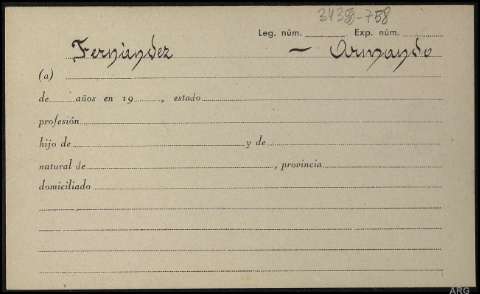 3438-758
Leg. núm. Exp. núm.
Fernández — Armando
(a)
de años en 19 , estado
profesión
hijo de y de
natural de , provincia
domiciliado
ARG